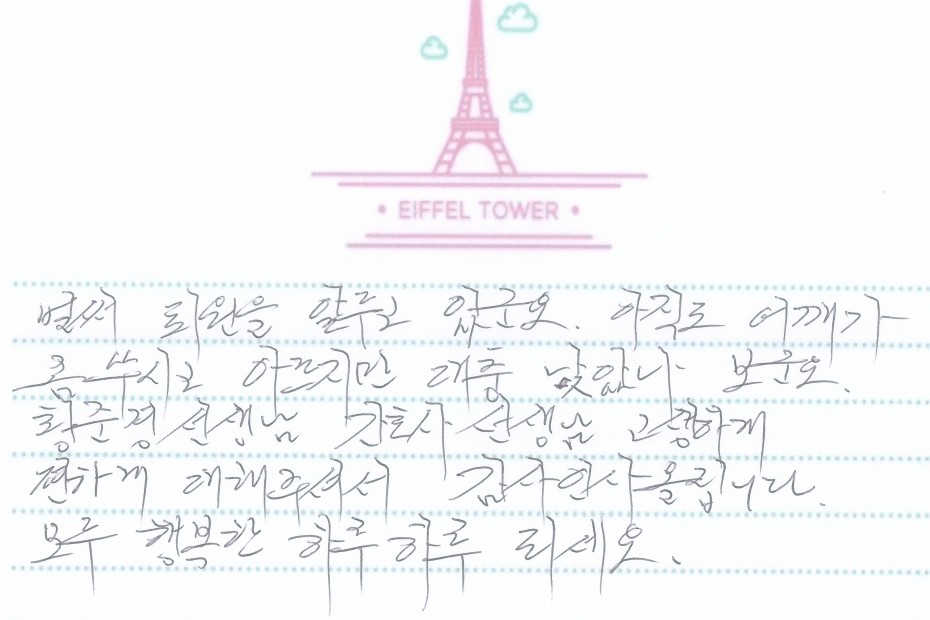 • EIFFEL TOWER •
벌써 퇴원을 앞두고 있군요. 아직도 어깨가
좀 쑤시고 아프지만 대충 낫았나 보군요.
황준경선생님 간호사 선생님 고생하게
편하게 대해주셔서 감사인사올립니다.
모두 행복한 하루하루 되세요.